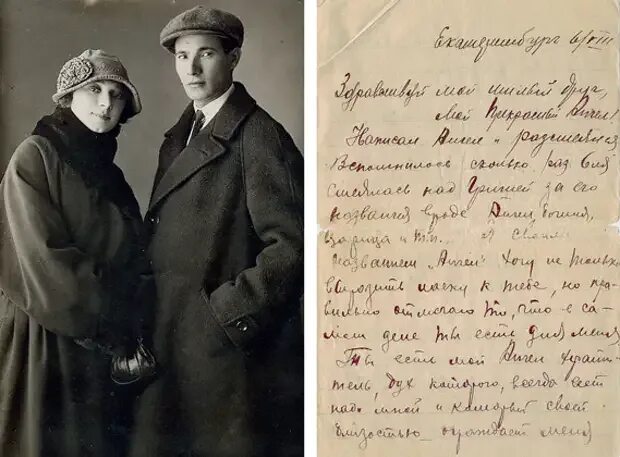 Екатеринбург 6/VIII
Здравствуй мой милый друг,
Мой прекрасный Ангел!
Написал Ангел и рассмеялся
Вспомнилось сколько раз
смеялась над Гришей за его
названия вроде богиня,
царица и т.п. Я своим
названием „Ангел" хочу не только
выразить ласку к тебе, но пра-
вильно отмечаю то, что в са-
мом деле ты есть для меня
Ты есть мой Ангел храни-
тель, дух которого, всегда есть
надо мной и который своей
близостью ограждает меня